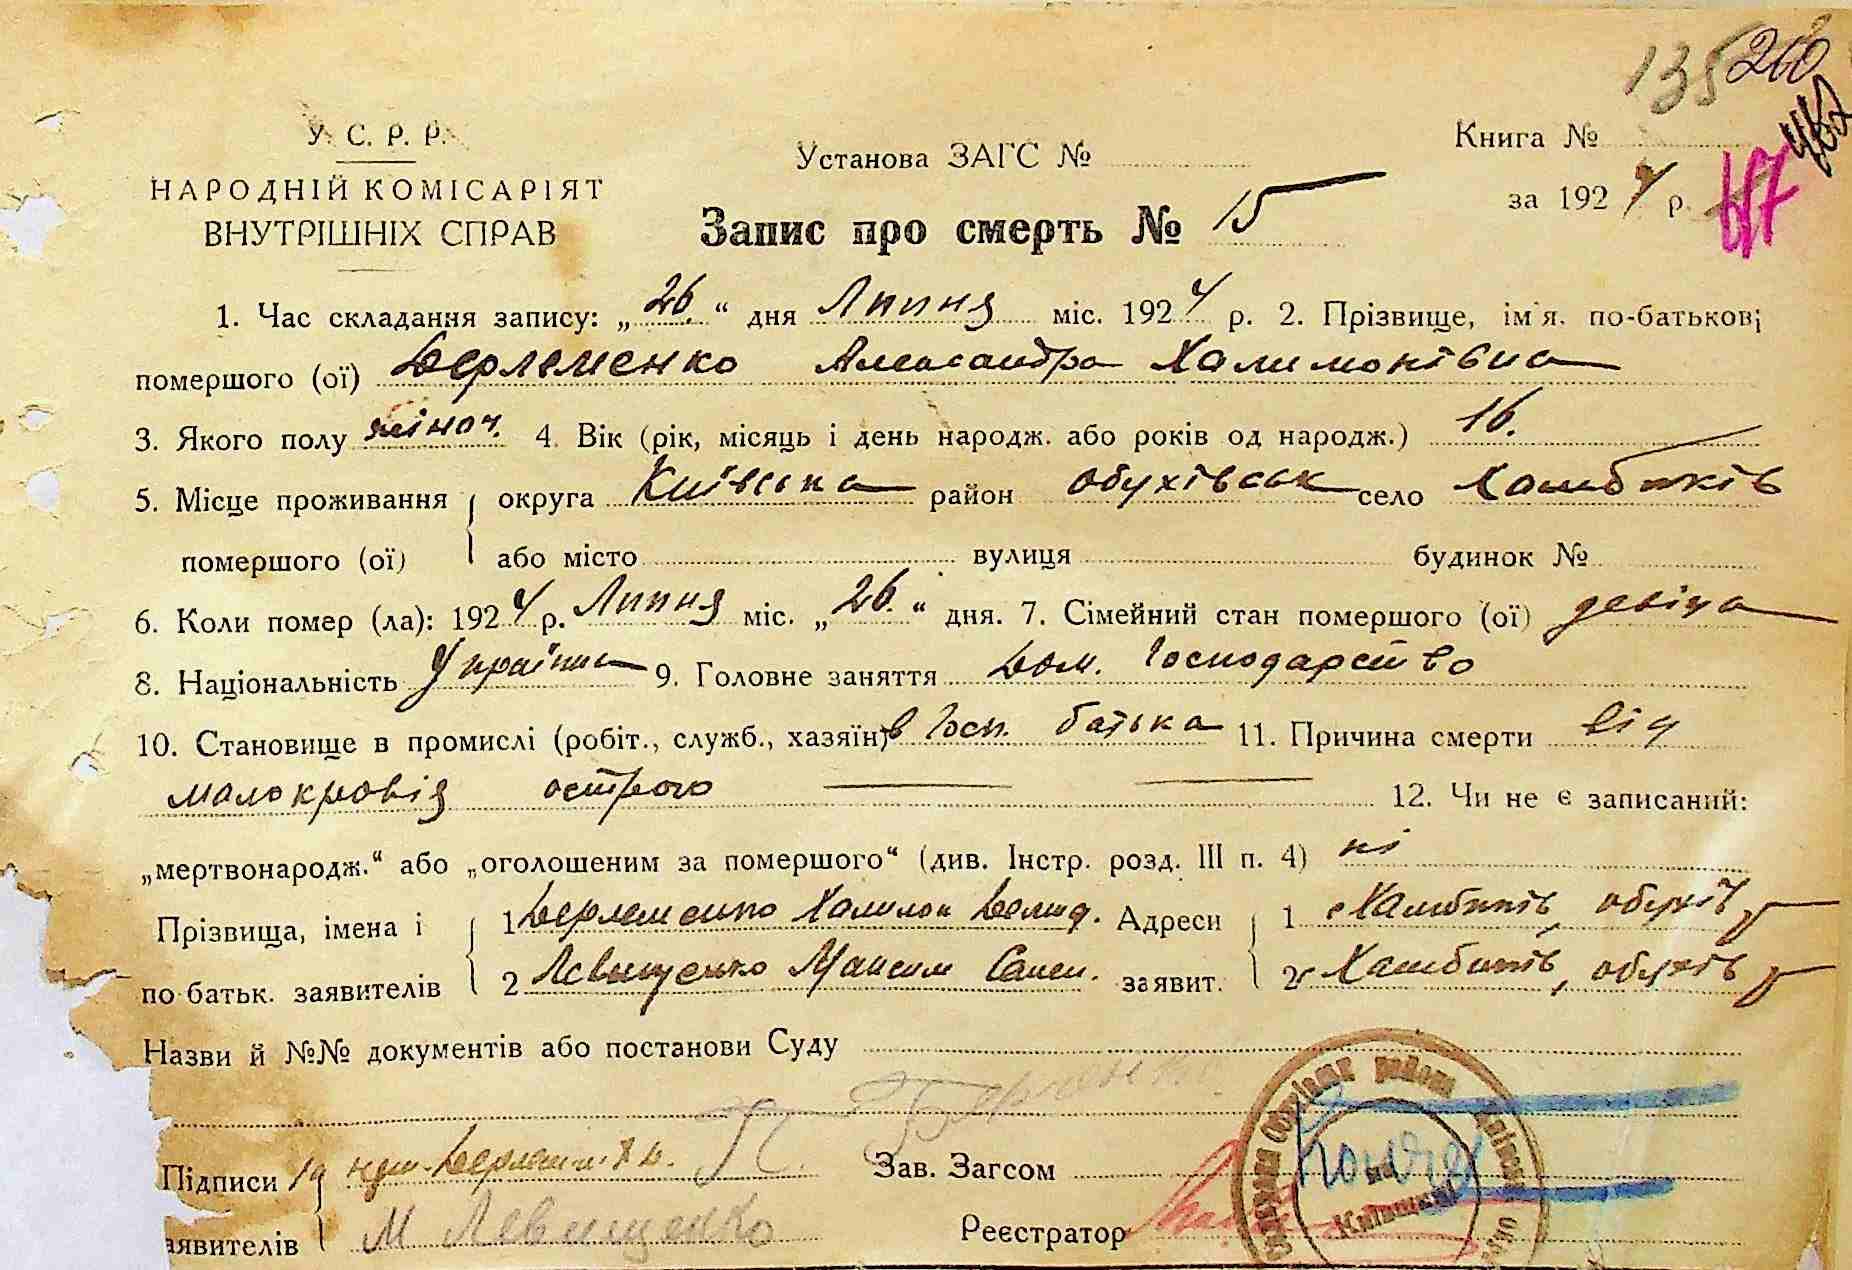 135 260
467
У. С. Р. Р.
НАРОДНІЙ КОМІСАРІЯТ
ВНУТРІШНІХ СПРАВ
Установа ЗАГС №
Книга №
за 1924 р.
Запис про смерть № 15
1. Час складання запису: „26.“ дня Липня міс. 1924 р. 2. Прізвище, імя, по-батькові
помершого (ої) Берлеменко Александра Халимонівна
3. Якого полу жіноч. 4. Вік (рік, місяць і день народж. або років од народж.) 16.
5. Місце проживання округа Київська район Обухівськ село Хамбиків
помершого (ої) або місто вулиця будинок №
6. Коли помер (ла): 1924 р. Липня міс. „26.“ дня. 7. Сімейний стан помершого (ої) девіца
8. Національність Українка 9. Головне заняття Дом. Господарство
10. Становище в промислі (робіт., служб., хазяїн) в Госп. батька 11. Причина смерти від
малокровія острого 12. Чи не є записаний:
„мертвонародж.“ або „оголошеним за помершого“ (див. Інстр. розд. III п. 4) ні
Прізвища, імена і 1 Берлеменко Халимон Адреси 1 с Хамбиків, обухів
по батьк. заявителів 2 Левищенко Максим заявит. 2 с Хамбиків, обухів
Назви й №№ документів або постанови Суду
Підписи 1
Зав. Загсом
аявителів М Левищенко
Реєстратор